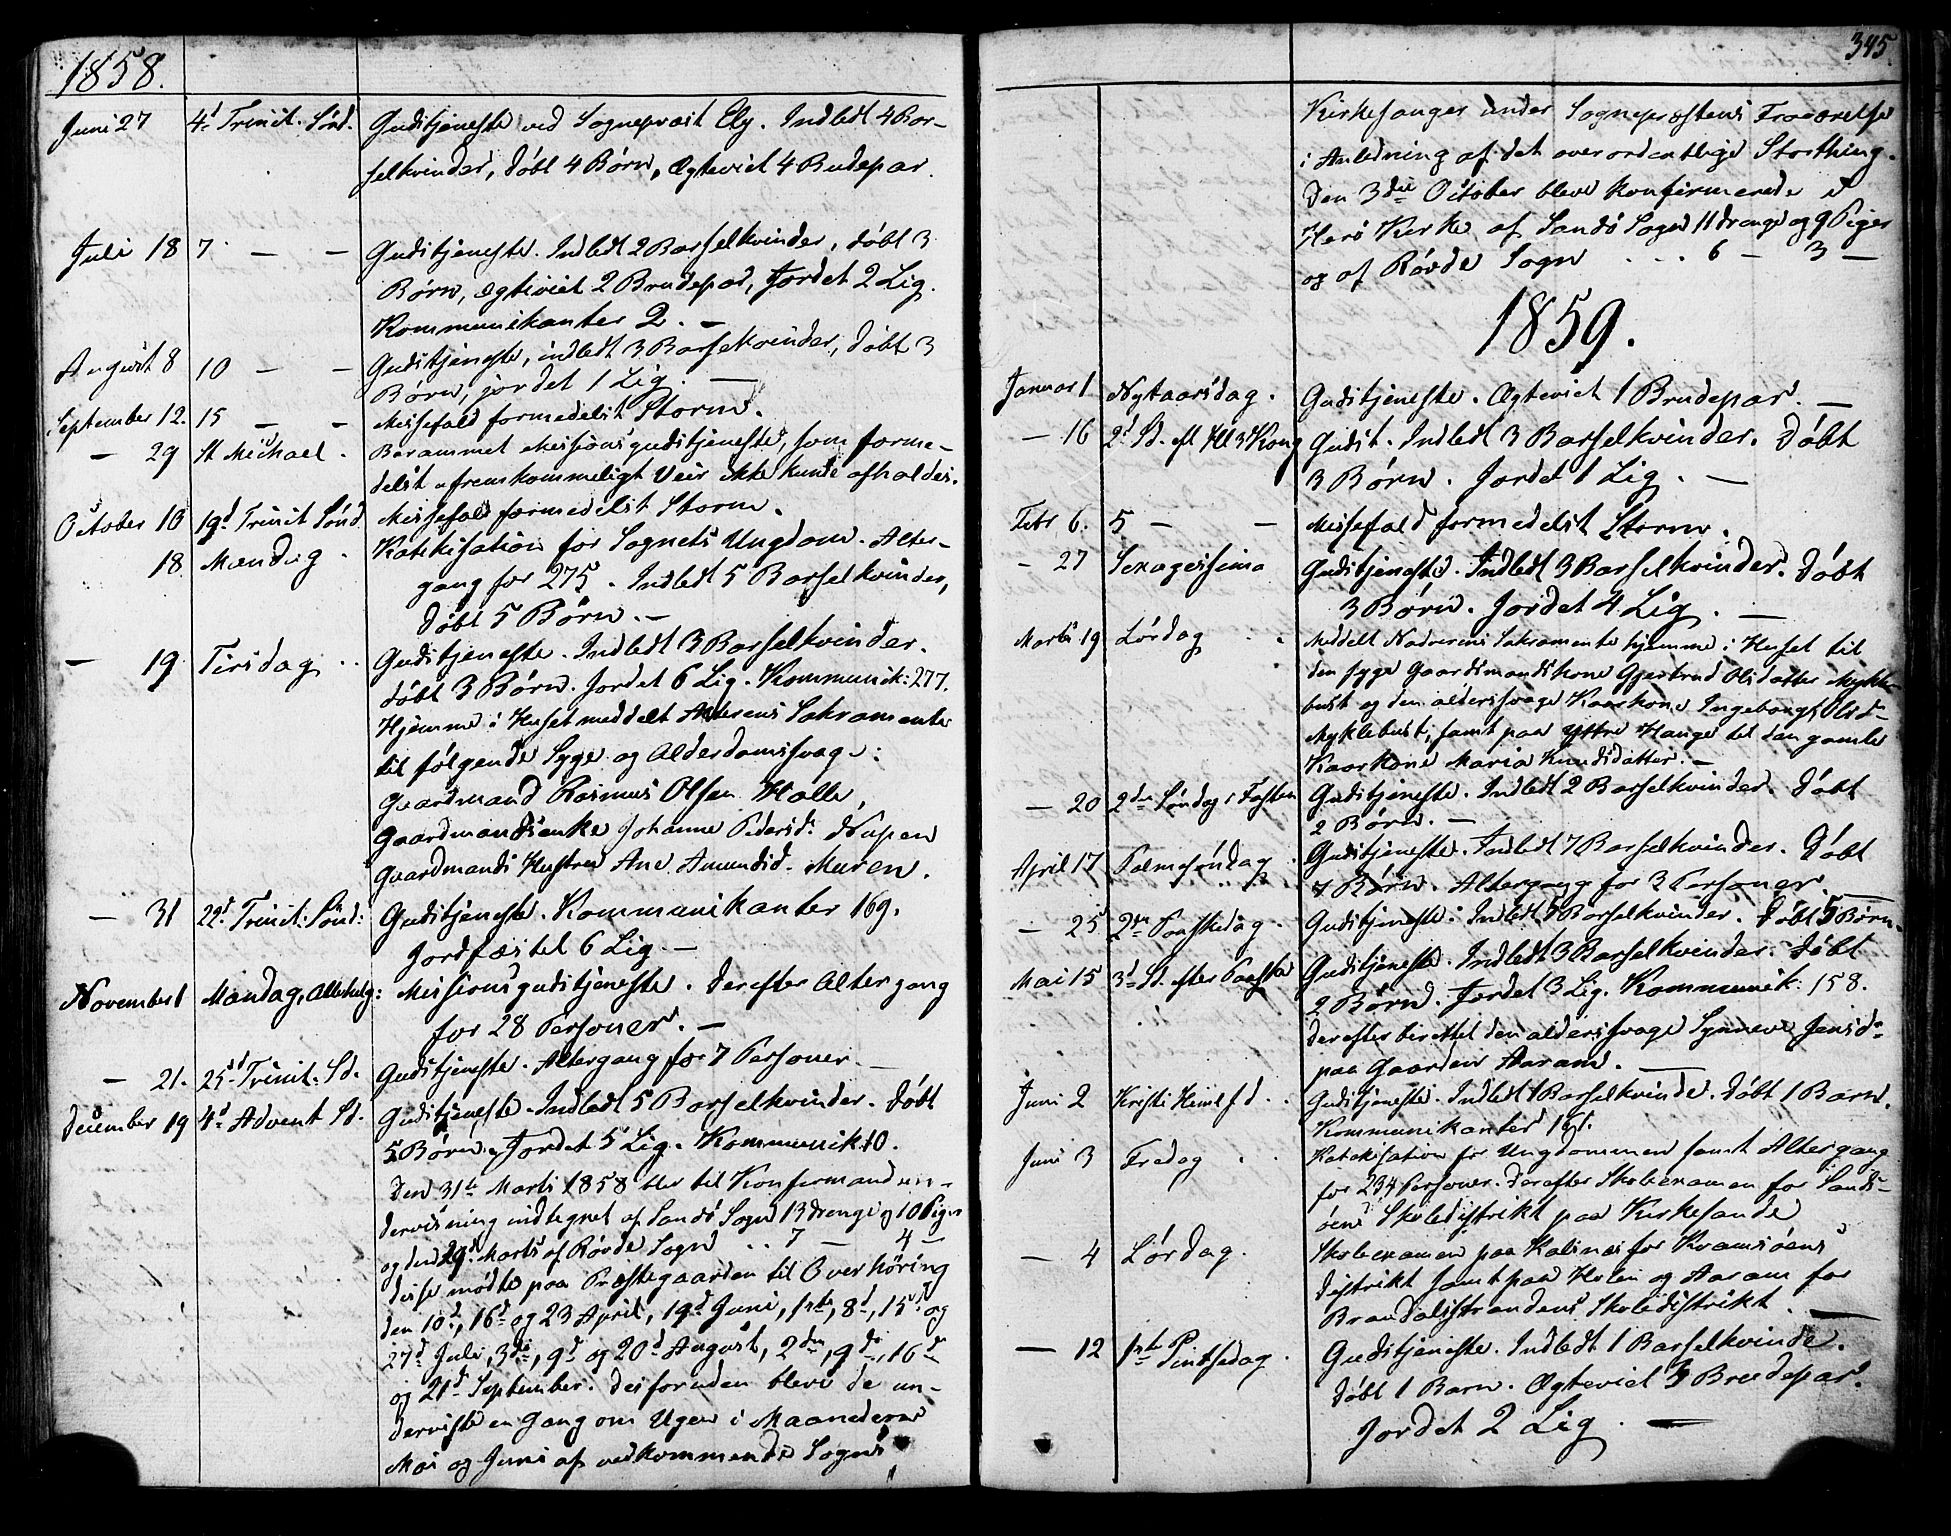 1858.
Juni 27 4d Trinit. Sönd. Gudstjeneste ved Sogneprest Ely. Indledt 4 Bar-
selkvinder, döbt 4 Börn, Ægteviet 4 Brudepar.
Juli 18 7 — — Gudstjeneste. Indledt 2 Barselkvinder, döbt 3
Börn, Ægteviet 2 Brudepar, Jordet 2 Lig.
Kommunikanter 2. —
August 8 10 — — Gudstjeneste, indledt 3 Barselkvinder, döbt 3
Börn, jordet 1 Lig. —
September 12. 15 — — Messefald formedelst Storm.
— 29 St Michael. Berammet Missionsgudstjeneste, som forme-
delst ufremkommeligt Veir ikke kunde afholdes.
October 10 19d Trinit Sönd Messefald formedelst Storm.
18 Mandag. Katekisation for Sognets Ungdom. Alter-
gang for 275. Indledt 5 Barselkvinder,
Döbt 5 Börn. —
— 19 Tirsdag .. Gudstjeneste. Indledt 3 Barselkvinder.
döbt 3 Börn. Jordet 6 Lig. Kommunik: 277.
Hjemme i Huset meddelt Alterens Sakramente
til følgende Syge og Alderdomssvage:
Gaardmand Rasmus Olsen Halle,
Gaardmandsenke Johanne Pedersd: Nupen
Gaardmands Hustru Ane Amundsd. Muren.
— 31 22d Trinit: Sönd: Gudstjeneste. Kommunikanter 169.
Jordfæstet 6 Lig. —
November 1 Mandag, Allehelg: Missionsgudstjeneste. Derefter Altergang
for 28 Personer. —
— 21. 25d Trinit: Sd. Gudstjeneste. Altergang for 7 Personer —
December 19 4d Advent Sd. Gudstjeneste. Indledt 5 Barselkvinder. Döbt
5 Börn. Jordet 5 Lig. Kommunik: 10.
Den 31te Marts 1858 blev til Konfirmandun-
dervisning indtegnet af Sandö Sogn 13 drenge og 10 Piger
og den 29d Marts af Rövde Sogn .. 7 — 4 —
disse mødte paa Præstegaarden til Overhöring
den 10d, 16d og 23 April, 19d Juni, 1ste, 8d, 15d og
27d Juli, 3die, 9d og 20d August, 2den, 9de, 16d
og 21d September. Desforuden bleve de un-
dervist en Gang om Ugen i Maanederne
Mai og Juni af vedkommende Sogns
345.
Kirkesanger under Sogneprestens Fraværelse
i Anledning af det overordentlige Storthing.
Den 3die October bleve konfirmerede i
Herö Kirke af Sandö Sogn 11 drenge og 9 Piger
og af Rövde Sogn .... 6 — 3 —
1859.
Januar 1 Nytaarsdag. Gudstjeneste. Ægteviet 1 Brudepar. —
— 16 2d Sd. eft Hl 3 Kong Gudst. Indledt 3 Barselkvinder. Döbt
3 Börn. Jordet 1 Lig. —
Febr 6. 5 — — Messefald formedelst Storm.
— 27 Sexagesima Gudstjeneste. Indledt 3 Barselkvinder. Döbt
3 Börn. Jordet 4 Lig. —
Marts 19 Lördag .. Meddelt Nadverens Sakramente hjemme i Huset til
den syge Gaardmandskone Gjertrud Olsdatter Mykle-
bust og den alderssvage Kaarkone Ingeborg Olsd-
Myklebust, samt paa Yttre Hauge til den gamle
Kaarkone Maria Knudsdatter. —
— 20 2den Söndag i Fasten Gudstjeneste. Indledt 2 Barselkvinder. Döbt
2 Börn. —
April 17 Palmesöndag. Gudstjeneste. Indledt 7 Barselkvinder. Döbt
7 Börn. Altergang for 2 Personer. —
— 25 2den Paaskedag. Gudstjeneste. Indledt 5 Barselkvinder. Döbt 5 Börn.
Mai 15 3d Sd. efter Paaske Gudstjeneste. Indledt 3 Barselkvinder. Döbt
2 Börn. Jordet 3 Lig. Kommunik: 158.
derefter berettet den alderssvage Synneve Jensd:
paa Gaarden Aaram. —
Juni 2 Kristi Himlfd. .. Gudstjeneste. Indledt 1 Barselkvinde. Döbt 1 Barn.
Kommunikanter 191.
Juni 3 Fredag .. Katekisation for Ungdommen samt Altergang
for 234 Personer. Derefter Skoleexamen for Sands-
öens Skoledistrikt paa Kirkesande
— 4 Lördag. Skoleexamen paa Kalnes for Kvamsöens
distrikt samt paa Holen og Aaram for
Brandalsstrandens Skoledistrikt. —
— 12 1ste Pintsedag. Gudstjeneste. Indledt 1 Barselkvinde.
Döbt 1 Barn. Ægteviet 3 Brudepar.
Jordet 2 Lig. —